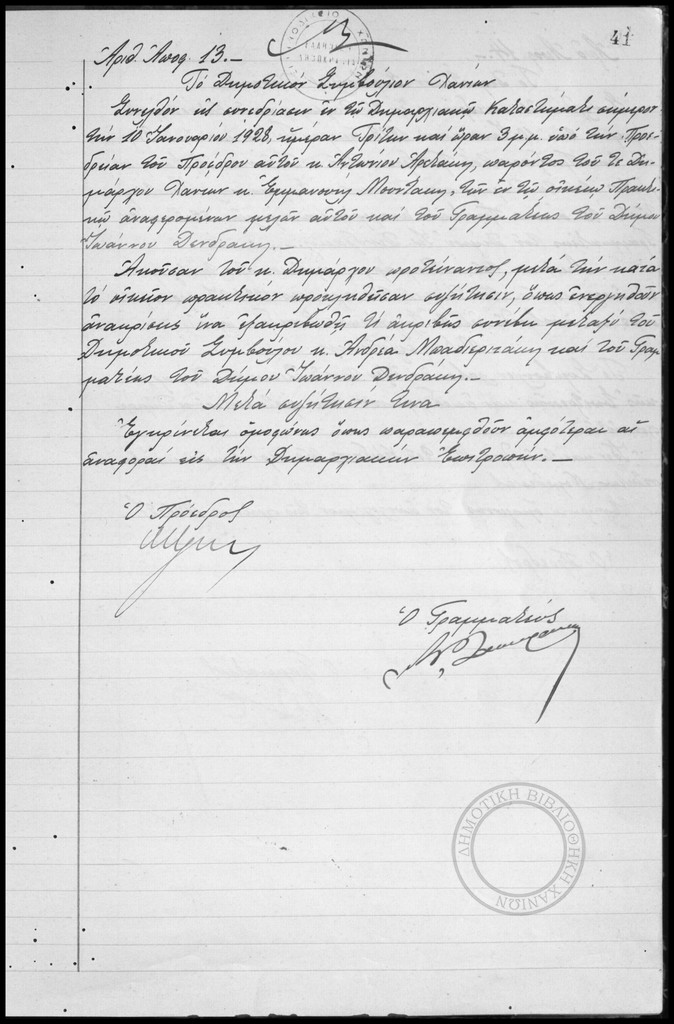 41
Ἀριθ. Ἀποφ. 13.—
Τό Δημοτικόν Συμβούλιον Χανίων
Συνελθόν εἰς συνεδρίασιν ἐν τῷ Δημαρχιακῷ Καταστήματι σήμερον
τήν 10 Ἰανουαρίου 1928, ἡμέραν Τρίτην καί ὥραν 3 μ.μ. ὑπό τήν Προε-
δρείαν τοῦ Προέδρου αὐτοῦ κ. Ἀντωνίου παρόντος τοῦ τε Δη-
μάρχου Χανίων κ. Ἐμμανουήλ Μουντάκη, τῶν ἐν τῷ οἰκείῳ Πρακτι-
κῷ ἀναφερομένων μελῶν αὐτοῦ καί τοῦ Γραμματέως τοῦ Δήμου
Ἰωάννου Δενδράκη.—
Ἀκοῦσαν τοῦ κ. Δημάρχου προτείναντος, μετά τήν κατά
τό οἰκεῖον πρακτικόν προκληθεῖσαν συζήτησιν, ὅπως ἐνεργηθῶσιν
ἀνακρίσεις ἵνα ἐξακριβωθῇ τί ἀκριβῶς συνέβη μεταξύ τοῦ
Δημοτικοῦ Συμβούλου κ. Ἀνδρέα καί τοῦ Γραμ-
ματέως τοῦ Δήμου Ἰωάννου Δενδράκη.—
Μετά συζήτησιν τινα
Ἐγκρίνεται ὁμοφώνως ὅπως παραπεμφθῶσιν ἀμφότεραι αἱ
ἀναφοραί εἰς τήν Δημαρχιακήν Ἐπιτροπήν.—
Ὁ Πρόεδρος
Ὁ Γραμματεύς
ΔΗΜΟΤΙΚΗ ΒΙΒΛΙΟΘΗΚΗ ΧΑΝΙΩΝ